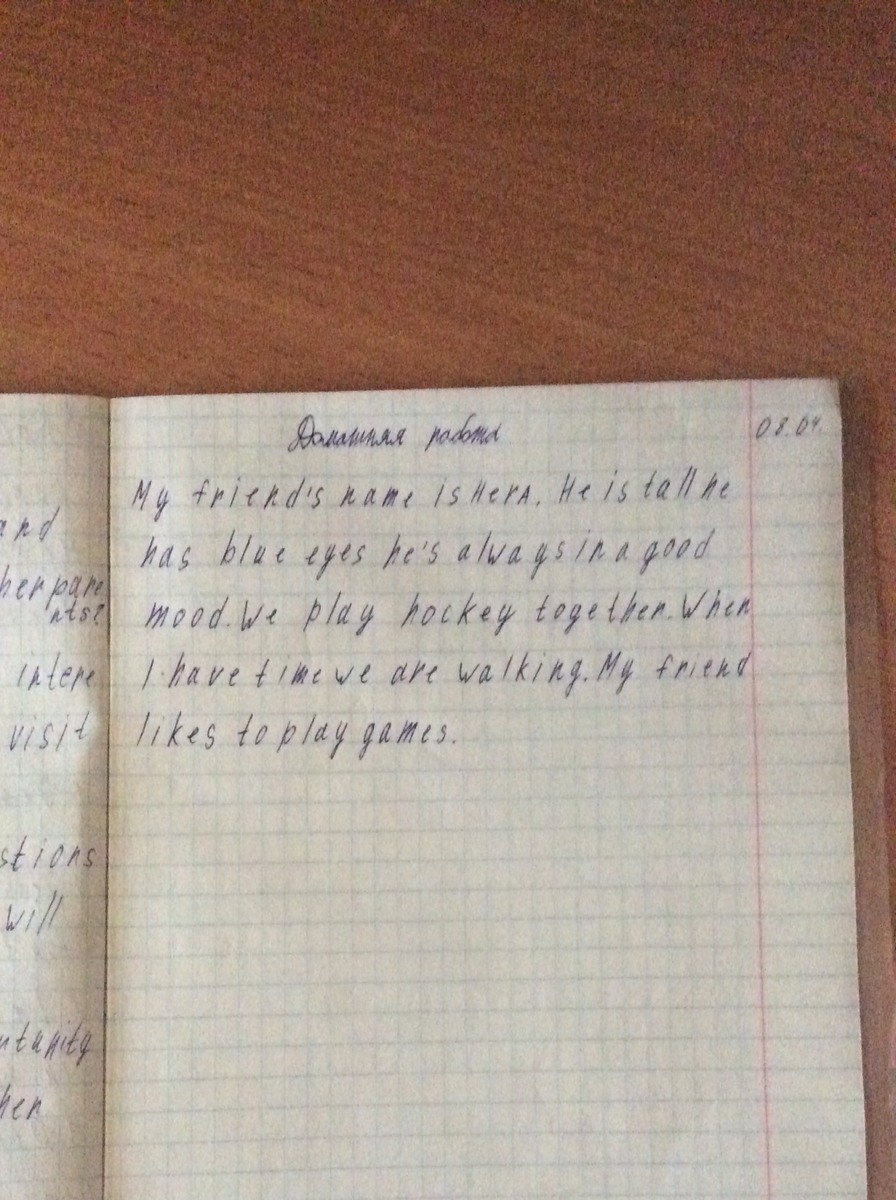 Домашняя работа 08.04.
My friend's name is HerA. He is tall he
has blue eyes he's always in a good
mood. We play hockey together. When
I have time we are walking. My friend
likes to play games.
and
her pare
nts?
intere
visit
stions
will
ntunity
her